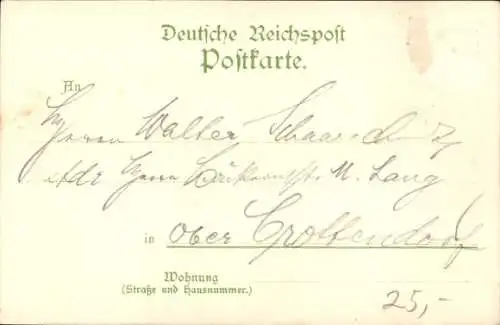 Deutsche Reichspost
Postkarte.
An
Herrn Walter
Herrn M. Lang
in Ober Crottendorf
Wohnung
(Straße und Hausnummer.)
25,-